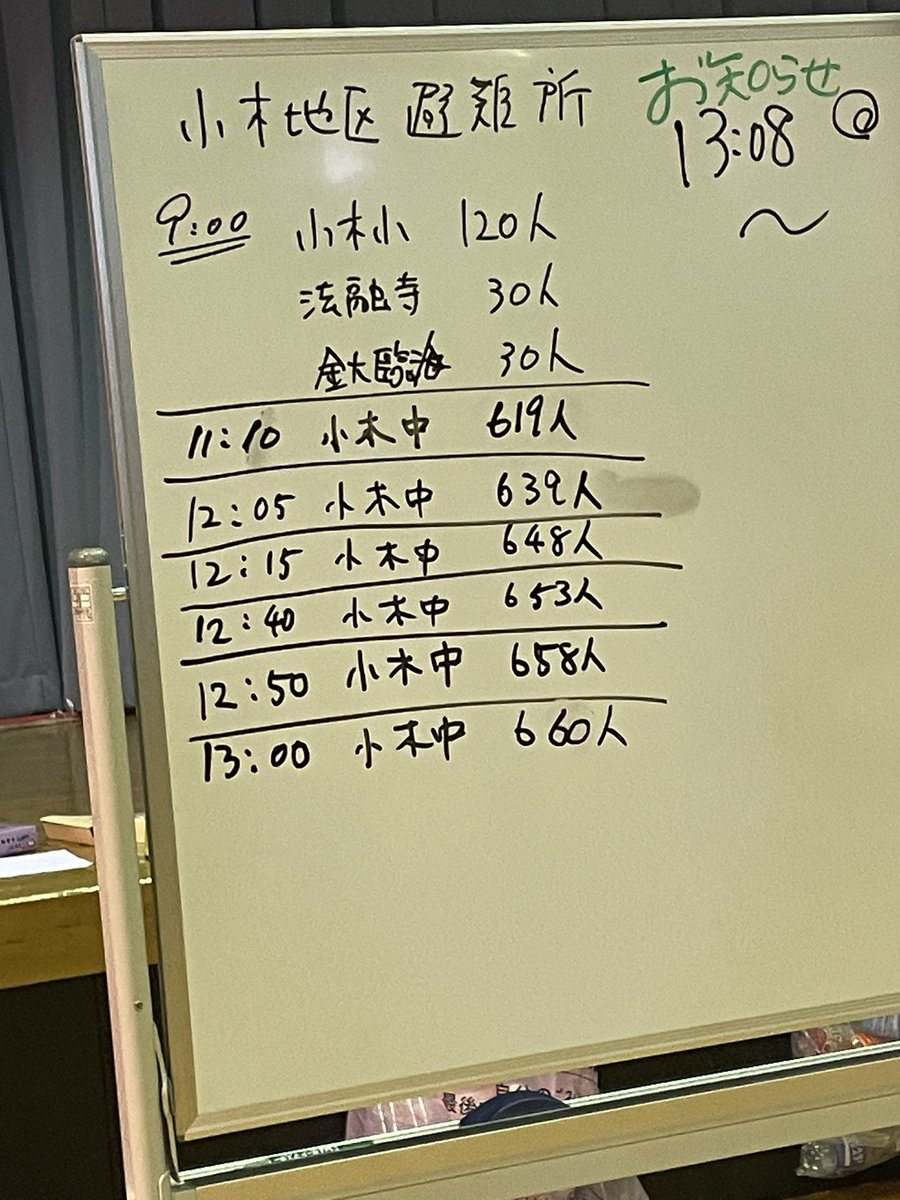 小木地区避難所
お知らせ
13:08
〜
9:00 小木小 120人
法融寺 30人
金大臨海 30人
11:10 小木中 619人
12:05 小木中 639人
12:15 小木中 648人
12:40 小木中 653人
12:50 小木中 658人
13:00 小木中 660人
最後